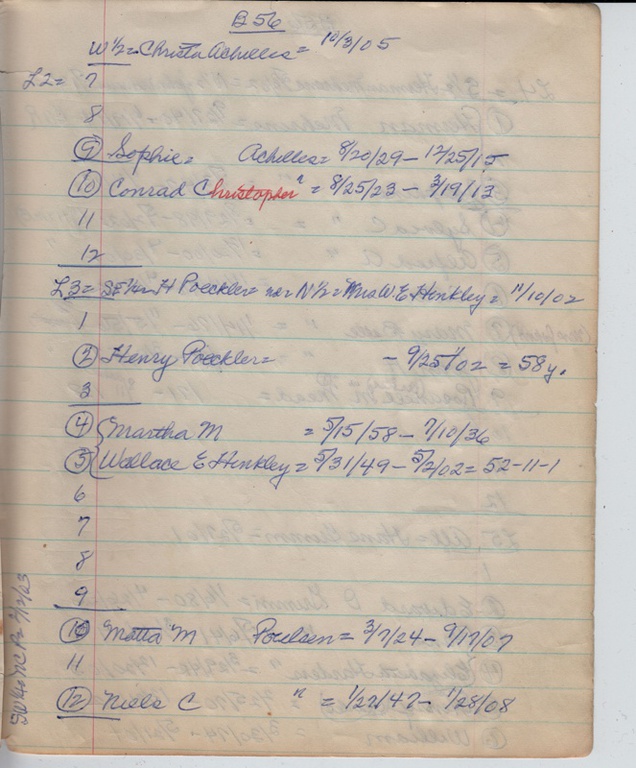 B 56
W 1/2 = Christa Achilles = 10/3/05
L2 = 7
8
9 Sophie = Achilles = 8/20/29 - 12/25/15
10 Conrad Christopher " = 8/25/23 - 3/19/13
11
12
L3 = SE 1/4 = H Poeckler = N 1/2 = Mrs W E Henkley = 11/10/02
1
2 Henry Poeckler = - 9/25/02 = 58 y.
3
4 Martha M = 5/15/58 - 7/10/36
5 Wallace E Henkley = 5/31/49 - 5/2/02 = 52-11-1
6
7
8
9
10 Matta M Poulsen = 3/7/24 - 9/17/07
11
12 Niels C " = 1/27/47 - 1/28/08